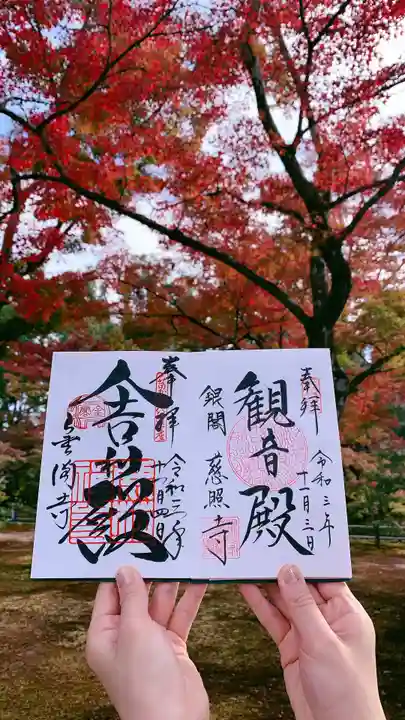 奉拝
令和三年
十一月三日
観音殿
銀閣 慈照寺
奉拝
令和三年
十一月四日
舎利殿
金閣寺